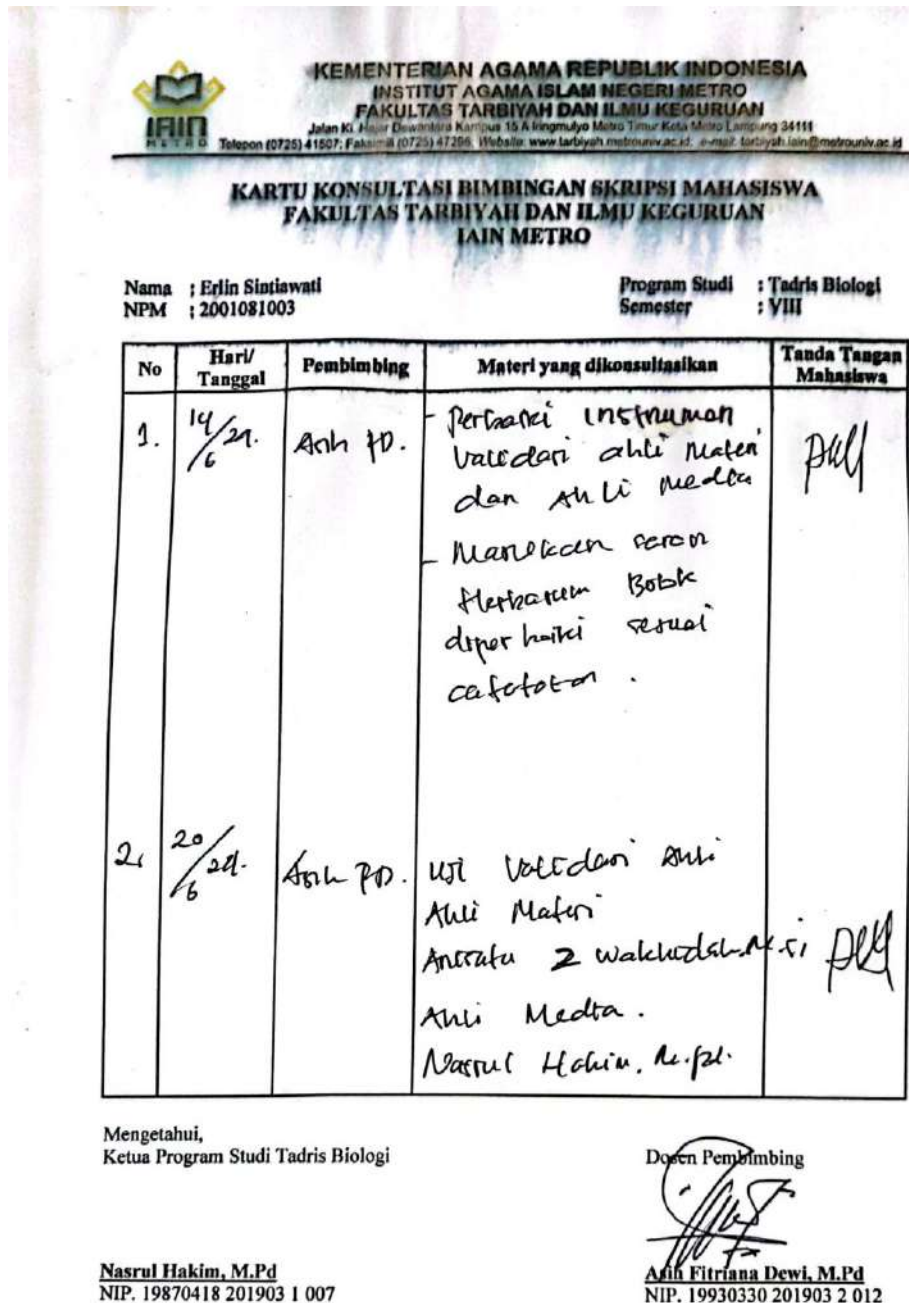 KEMENTERIAN AGAMA REPUBLIK INDONESIA
INSTITUT AGAMA ISLAM NEGERI METRO
FAKULTAS TARBIYAH DAN ILMU KEGURUAN
Jalan Ki. Hajar Dewantara Kampus 15 A Iringmulyo Metro Timur Kota Metro Lampung 34111
Telepon (0725) 41507; Faksimili (0725) 47296; Website: www.tarbiyah.metrouniv.ac.id; e-mail: tarbiyah.iain@metrouniv.ac.id
IAIN
METRO
KARTU KONSULTASI BIMBINGAN SKRIPSI MAHASISWA
FAKULTAS TARBIYAH DAN ILMU KEGURUAN
IAIN METRO
Nama : Erlin Sintiawati
NPM : 2001081003
Program Studi : Tadris Biologi
Semester : VIII
No Hari/ Tanggal Pembimbing Materi yang dikonsultasikan Tanda Tangan Mahasiswa
1. 14/6 24. Asih FD. - Perbaiki instrumen
validasi ahli Materi
dan Ahli Media
- Masukkan saran
Herbarium Book
diperbaiki sesuai
catatan.
2. 20/6 24. Asih FD. Uji Validasi Ahli
Ahli Materi
Anisatu Z Wakhidah, M.Si
Ahli Media.
Nasrul Hakim, M.Pd.
Mengetahui,
Ketua Program Studi Tadris Biologi
Nasrul Hakim, M.Pd
NIP. 19870418 201903 1 007
Dosen Pembimbing
Asih Fitriana Dewi, M.Pd
NIP. 19930330 201903 2 012